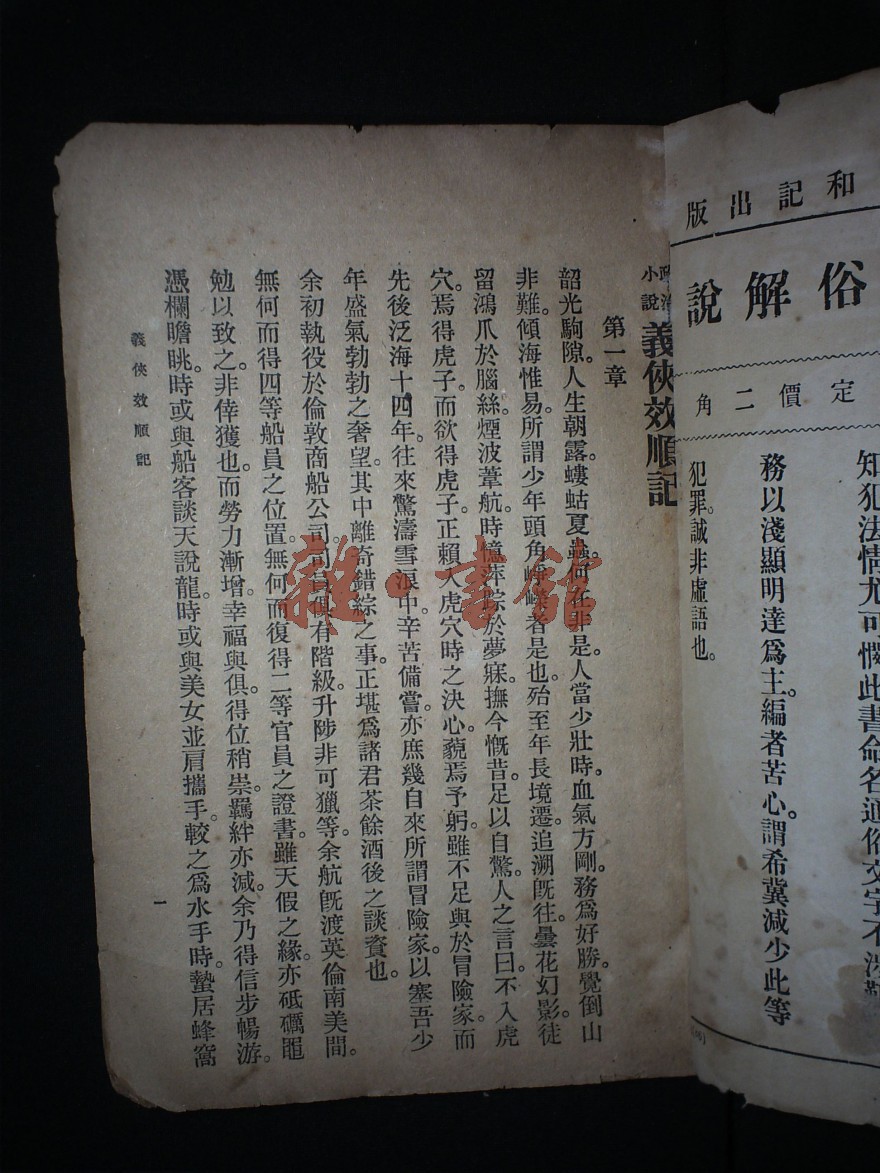 和記出版
俗解說
定價二角
知犯法情尤可憫此書命名通俗文字不涉
務以淺顯明達爲主。編者苦心。謂希冀減少此等
犯罪。誠非虛語也。
政治小說
義俠效順記
第一章
韶光駒隙。人生朝露。螻蛄夏蟲。何在非是。人當少壯時。血氣方剛。務爲好勝。覺倒山
非難。傾海惟易。所謂少年頭角崢嶸者是也。殆至年長境遷。追溯旣往。曇花幻影。徒
留鴻爪於腦絲。煙波葦航。時憶萍踪於夢寐。撫今慨昔。足以自驚。人之言曰。不入虎
穴。焉得虎子。而欲得虎子。正賴入虎穴時之決心。藐焉予躬。雖不足與於冒險家。而
先後泛海十四年。往來驚濤雪浪中。辛苦備嘗。亦庶幾自來所謂冒險家。以塞吾少
年盛氣勃勃之奢望。其中離奇錯綜之事。正堪爲諸君茶餘酒後之談資也。
余初執役於倫敦商船公司。司員俱有階級。升陟非可獵等。余航旣渡英倫南美間。
無何而得四等船員之位置。無何而復得二等官員之證書。雖天假之緣。亦砥礪黽
勉以致之。非倖獲也。而勞力漸增。幸福與俱。得位稍崇。羈絆亦減。余乃得信步暢游。
憑欄瞻眺。時或與船客談天說龍。時或與美女並肩攜手。較之爲水手時。蟄居蜂窩
義俠效順記
一
雜·書館